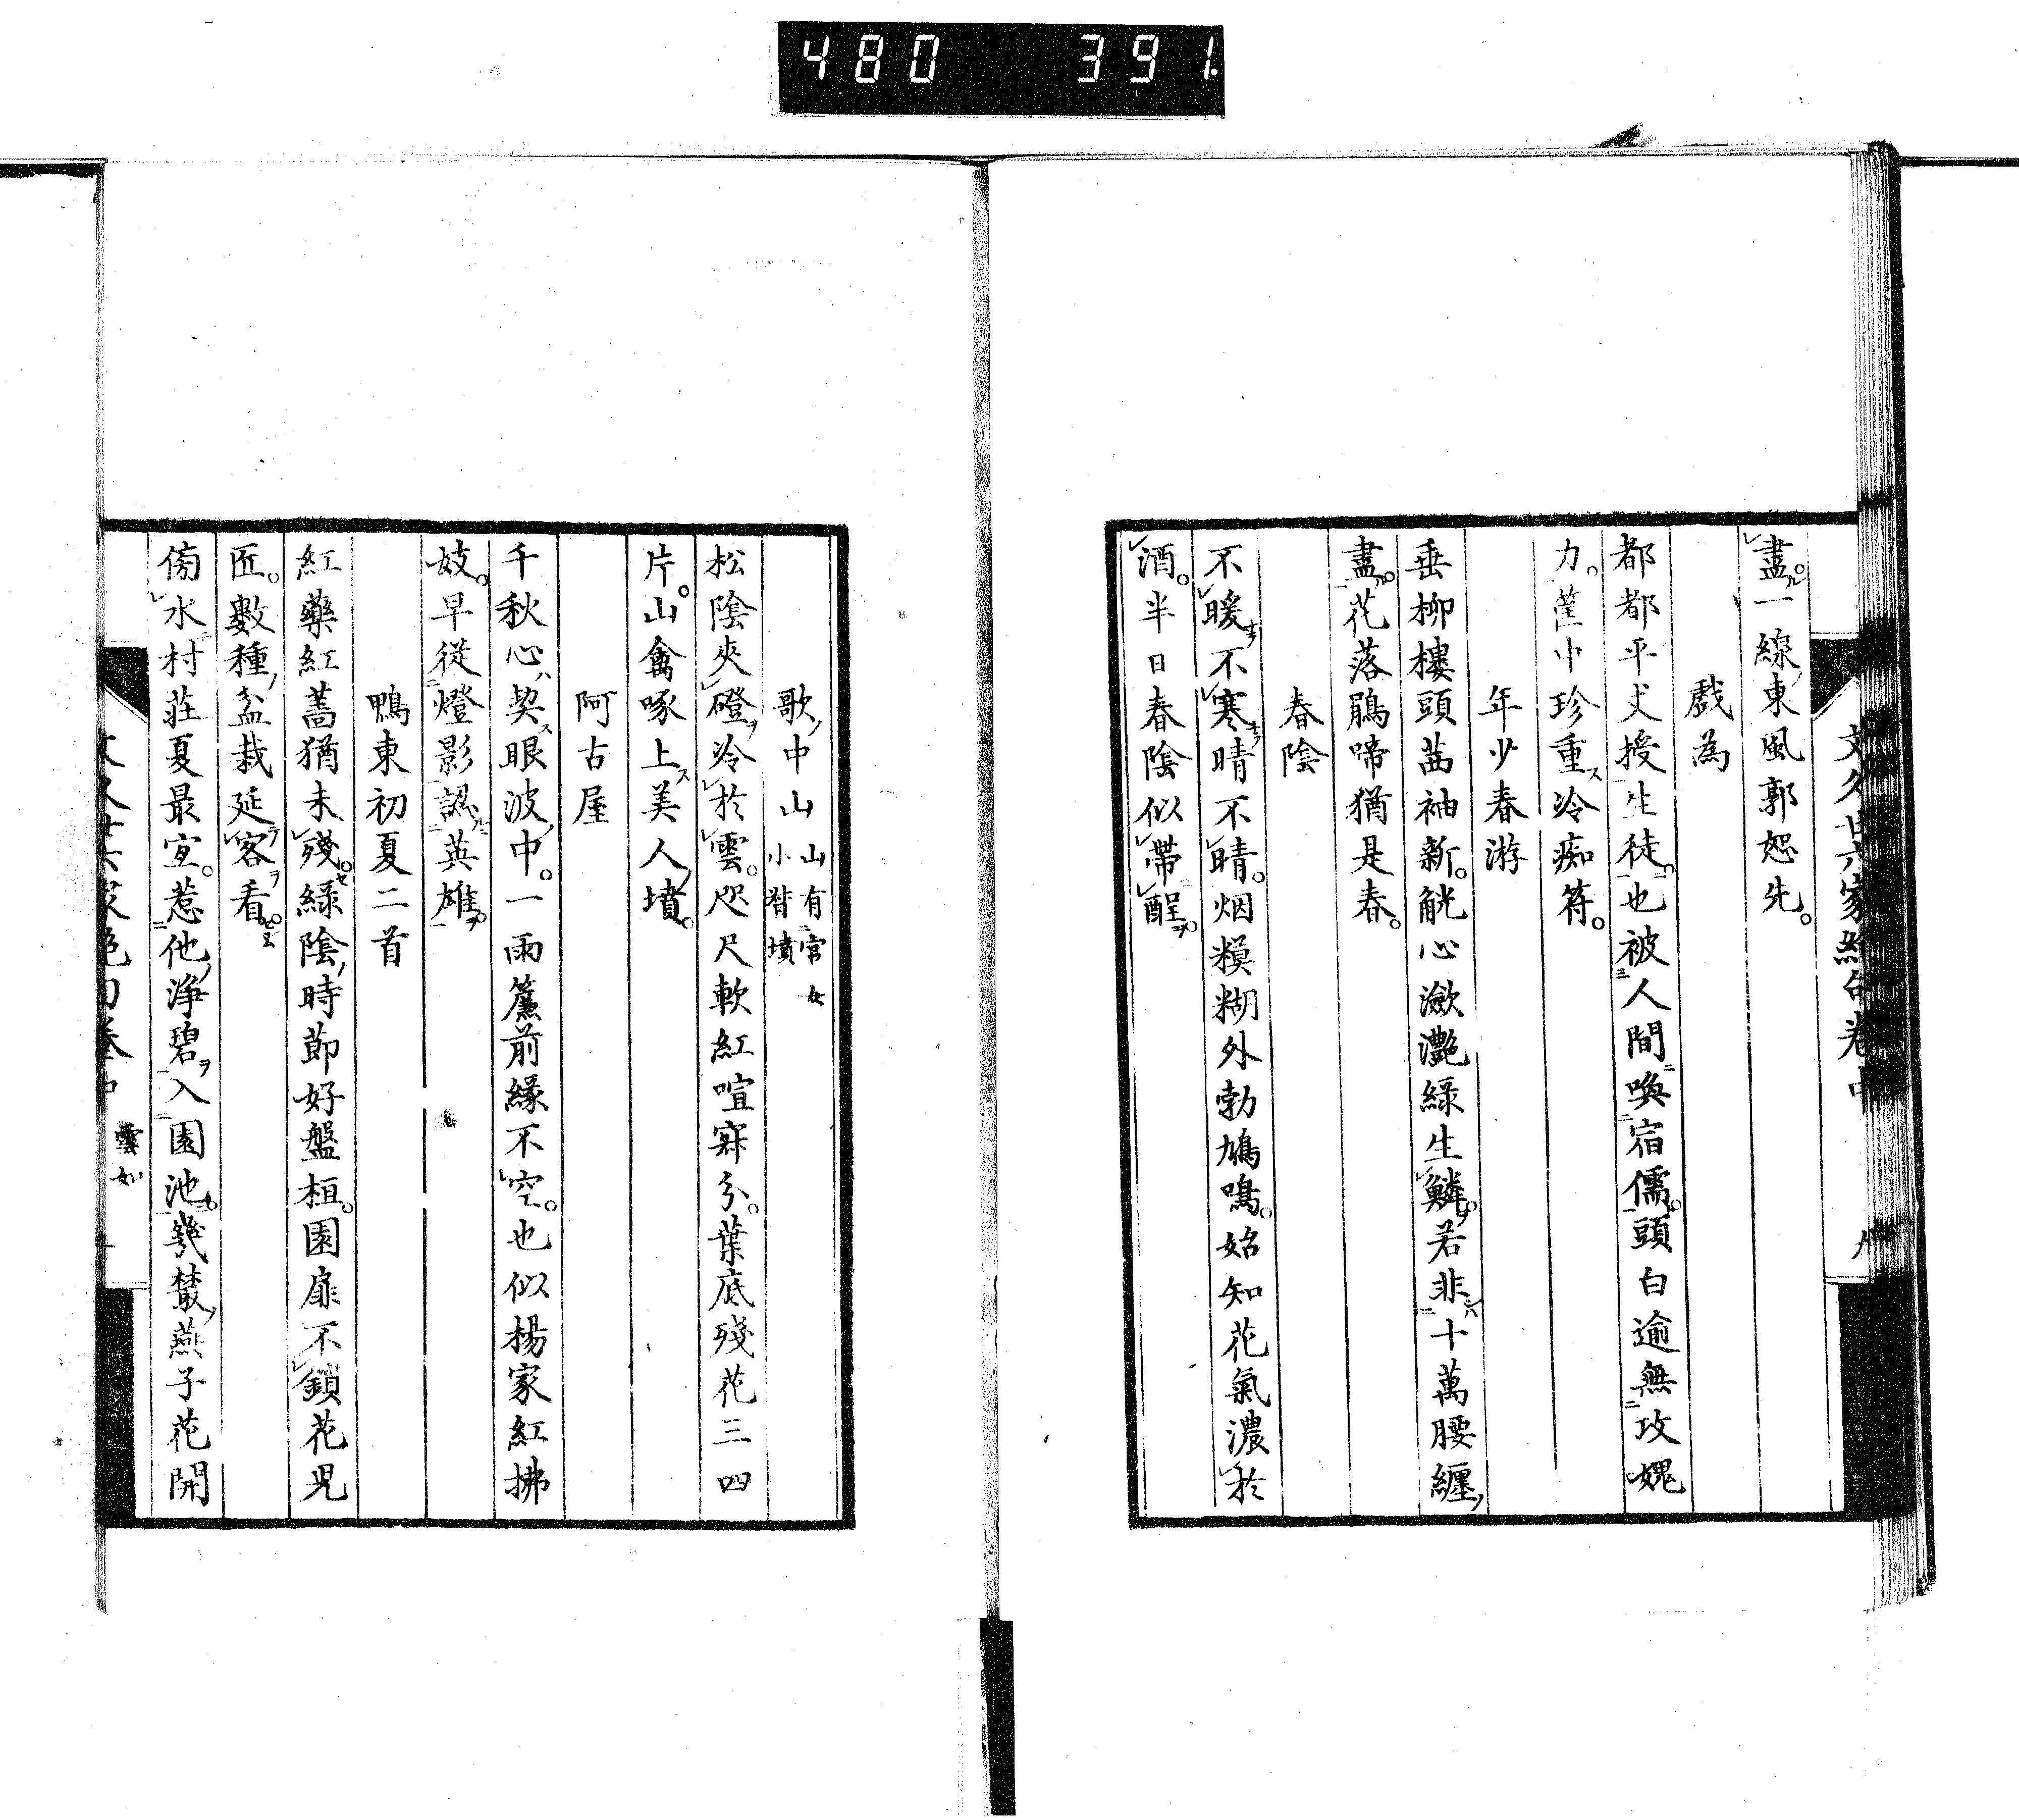 480 391
文久廿六家絶句卷中
盡。一線東風郭恕先。
戲為
都都平丈授生徒。也被人間喚宿儒。頭白逾無攻媿
力。篋中珍重冷痴符。
年少春游
垂柳樓頭茜袖新。觥心瀲灔綠生鱗。若非十萬腰纏
盡。花落鵑啼猶是春。
春陰
不暖不寒晴不晴。烟糢糊外勃鳩鳴。始知花氣濃於
酒。半日春陰似帶酲。
歌中山 山有官女
小督墳
松陰夾磴冷於雲。咫尺軟紅喧寂分。葉底殘花三四
片。山禽啄上美人墳。
阿古屋
千秋心契眼波中。一雨簾前緣不空。也似楊家紅拂
妓。早從燈影認英雄。
鴨東初夏二首
紅藥紅薔猶未殘。綠陰時節好盤桓。園扉不鎖花兒
匠。數種盆栽延客看。
傍水村莊夏最宜。惹他淨碧入園池。幾叢燕子花開
雲如